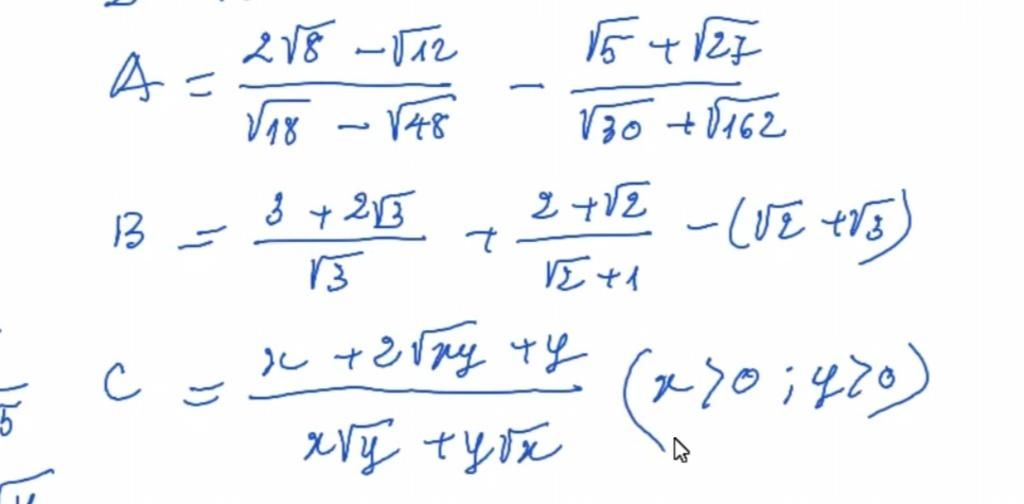 A = (2√8 - √12)/(√18 - √48) - (√5 + √27)/(√30 + √162)
B = (3 + 2√3)/√3 + (2 + √2)/(√2 + 1) - (√2 + √3)
C = (x + 2√xy + y)/(x√y + y√x) (x > 0 ; y > 0)
5